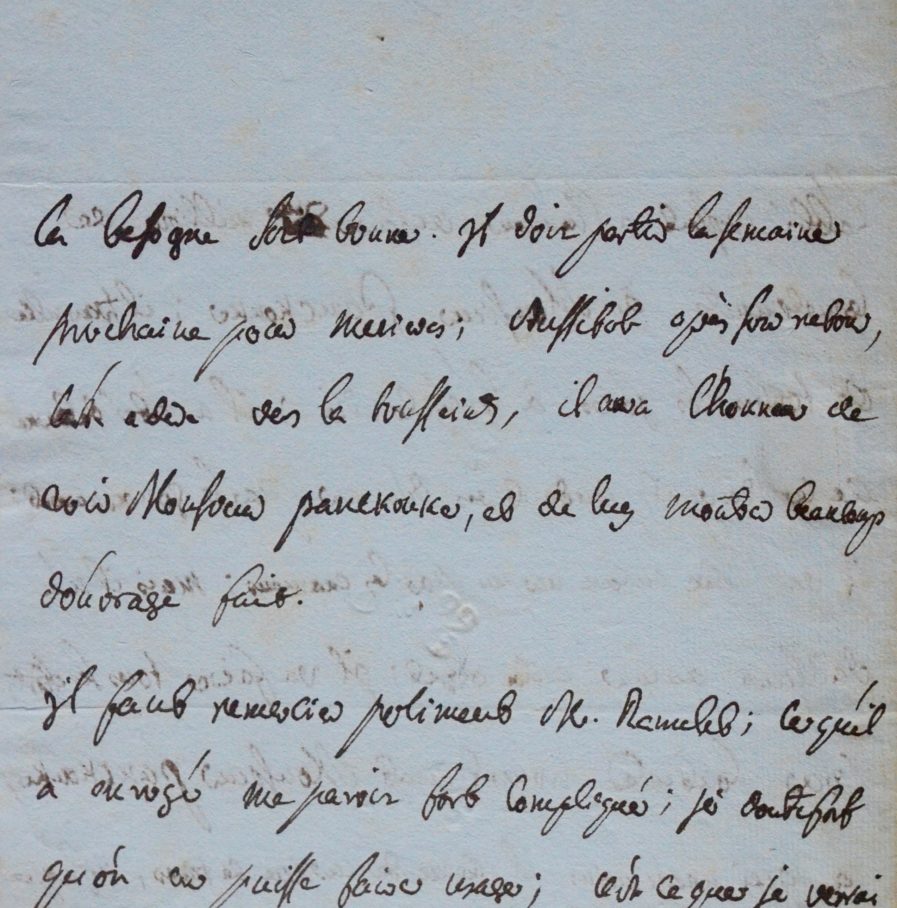 la besogne soit bonne. il doit partir la semaine
prochaine pour ; aussitost après son retour,
c'est a dire dès la toussaints, il aura l'honneur de
voir Monsieur panckouke, et de luy montrer beaucoup
d'ouvrage fait.
il faut remercier poliment M. ; ce qu'il
a envoyé me paroit fort compliqué; je doute fort
qu'on en puisse faire usage; c'est ce que je verrai